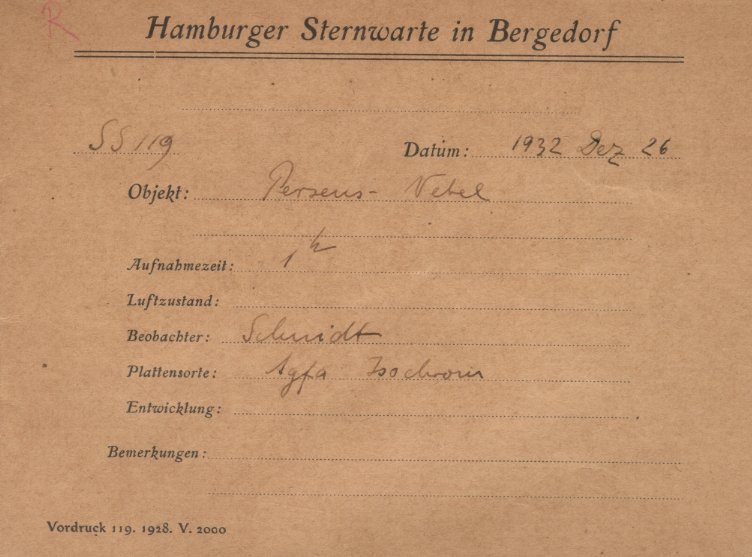 R
Hamburger Sternwarte in Bergedorf
SS 119 Datum: 1932 Dez 26
Objekt: Perseus-Nebel
Aufnahmezeit: 1h
Luftzustand:
Beobachter: Schmidt
Plattensorte: Agfa Isochrom
Entwicklung:
Bemerkungen:
Vordruck 119. 1928. V. 2000